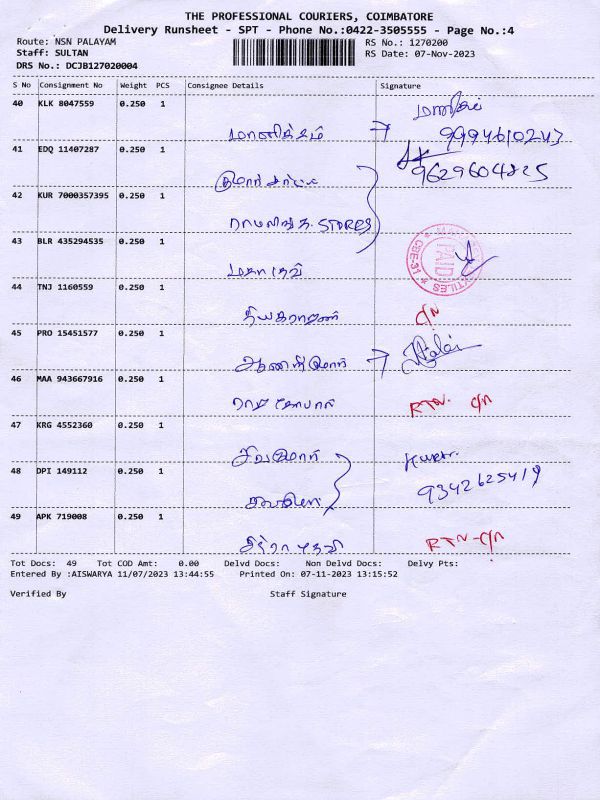 THE PROFESSIONAL COURIERS, COIMBATORE
Delivery Runsheet - SPT - Phone No.:0422-3505555 - Page No.:4
Route: NSN PALAYAM RS No.: 1270200
Staff: SULTAN RS Date: 07-Nov-2023
DRS No.: DCJB127020004
S No Consignment No Weight PCS Consignee Details Signature
40 KLK 8047559 0.250 1
மாணிக்கம் 9994610243
41 EDQ 11407287 0.250 1
9629604825
42 KUR 7000357395 0.250 1
ராமலிங்க STORES
43 BLR 435294535 0.250 1
PAID
CBE-31
மகாதேவி
44 TNJ 1160559 0.250 1
தியாகராஜன்
45 PRO 15451577 0.250 1
46 MAA 943667916 0.250 1
ராஜகோபால் RTN. C/N
47 KRG 4552360 0.250 1
சிவகுமார்
48 DPI 149112 0.250 1
9342625419
49 APK 719008 0.250 1
சித்ராதேவி RTN-C/N
Tot Docs: 49 Tot COD Amt: 0.00 Delvd Docs: Non Delvd Docs: Delvy Pts:
Entered By :AISWARYA 11/07/2023 13:44:55 Printed On: 07-11-2023 13:15:52
Verified By Staff Signature